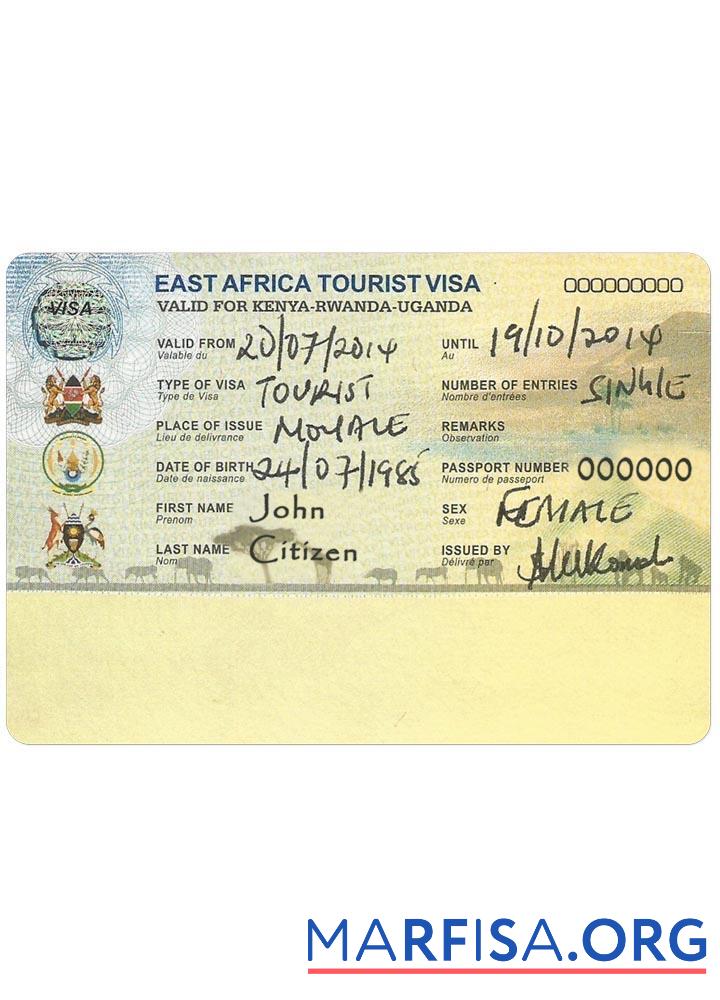 EAST AFRICA TOURIST VISA 000000000
VISA
VALID FOR KENYA-RWANDA-UGANDA
VALID FROM 20/07/2014 UNTIL 19/10/2014
Valable du Au
TYPE OF VISA TOURIST NUMBER OF ENTRIES SINGLE
Type de Visa Nombre d'entrées
PLACE OF ISSUE MOYALE REMARKS
Lieu de delivrance Observation
DATE OF BIRTH 24/07/1985 PASSPORT NUMBER 000000
Date de naissance Numero de passeport
FIRST NAME John SEX FEMALE
Prenom Sexe
LAST NAME Citizen ISSUED BY
Nom Délivré par
MARFISA.ORG